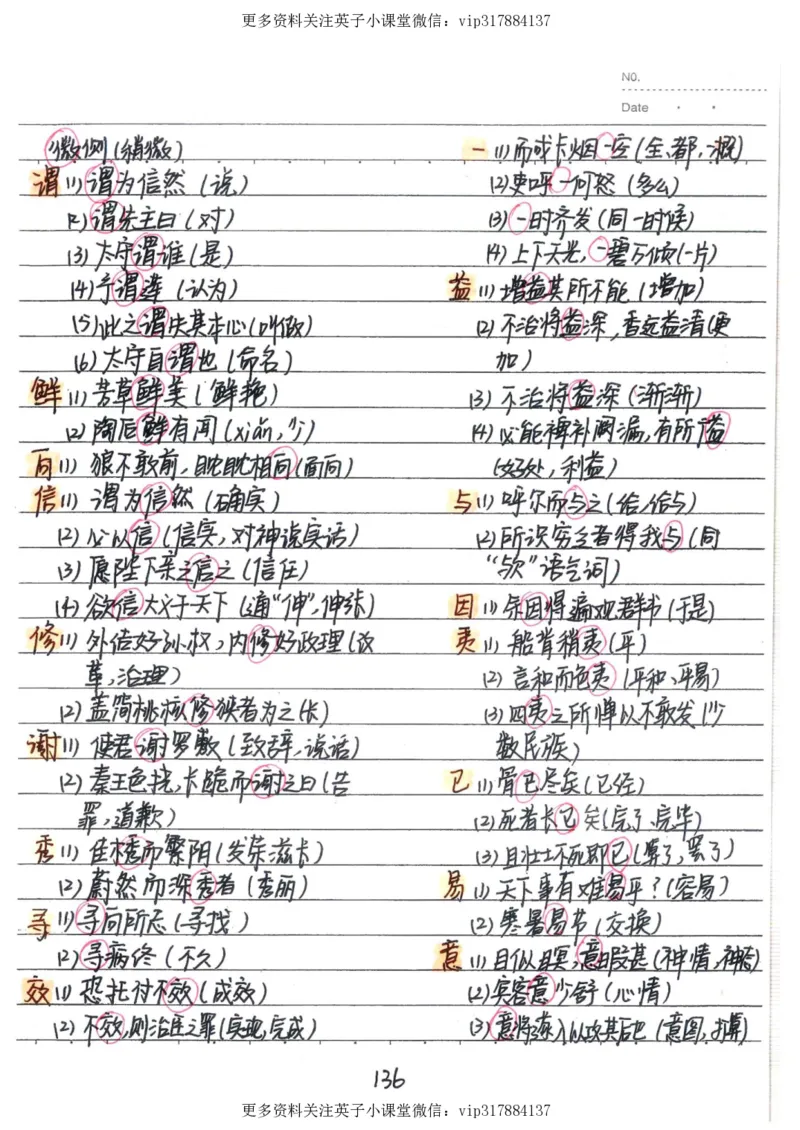 更多资料关注英子小课堂微信：vip317884137
NO.
Date
微侧(稍微)
谓(1)谓为信然(说)
(2)谓先主曰(对)
(3)太守谓谁(是)
(4)予谓莲(认为)
(5)此之谓失其本心(叫做)
(6)太守自谓也(命名)
鲜(1)芳草鲜美(鲜艳)
(2)陶后鲜有闻(xiǎn,少)
向(1)狼不敢前,眈眈相向(面向)
信(1)谓为信然(确实)
(2)必以信(信实,对神说实话)
(3)愿陛下亲之信之(信任)
(4)欲信大义于天下(通“伸”,伸张)
修(1)外结好孙权,内修好政理(改
革,治理)
(2)盖简桃核修狭者为之(长)
谢(1)使君谢罗敷(致辞,说话)
(2)秦王色挠,长跪而谢之曰(告
罪,道歉)
秀(1)佳木秀而繁阴(发荣滋长)
(2)蔚然而深秀者(秀丽)
寻(1)寻向所志(寻找)
(2)寻病终(不久)
效(1)恐托付不效(成效)
(2)不效,则治臣之罪(实现,完成)
一(1)而或长烟一空(全,都,一概)
(2)吏呼一何怒(多么)
(3)一时齐发(同一时候)
(4)上下天光,一碧万倾(一片)
益(1)增益其所不能(增加)
(2)不治将益深,香远益清(更
加)
(3)不治将益深(渐渐)
(4)必能裨补阙漏,有所广益
(好处,利益)
与(1)呼尔而与之(给,给与)
(2)所识穷乏者得我与(同
“欤”语气词)
因(1)余因得遍观群书(于是)
夷(1)船背稍夷(平)
(2)言和而色夷(平和、平易)
(3)四夷之所惮以不敢发(少
数民族)
已(1)骨已尽矣(已经)
(2)死者长已矣(完了、完毕)
(3)且壮士不死即已(算了,罢了)
易(1)天下事有难易乎?(容易)
(2)寒暑易节(交换)
意(1)目似瞑,意暇甚(神情,神态)
(2)宾客意少舒(心情)
(3)意将遂入以攻其后也(意图,打算)
136
更多资料关注英子小课堂微信：vip317884137